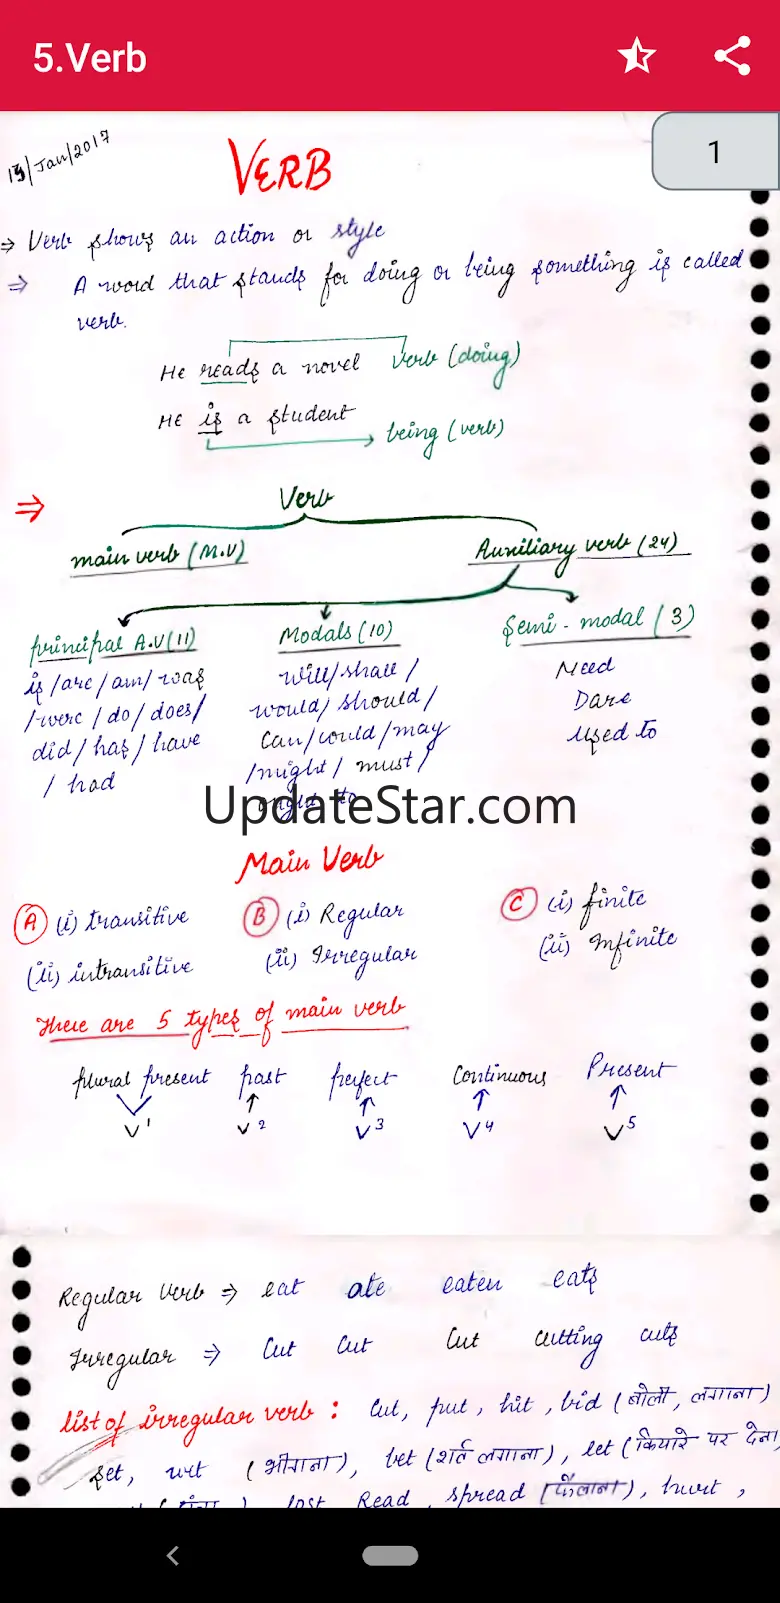 5.Verb
1
13/Jan/2017
VERB
⇒ Verb shows an action or style
⇒ A word that stands for doing or being something is called
verb.
He reads a novel verb (doing)
HE is a student
being (verb)
⇒ Verb
main verb (M.V) Auxiliary verb (24)
principal A.V(11) Modals (10) Semi-modal (3)
is/are/am/was will/shall/ Need
/were/do/does/ would/should/ Dare
did/has/have can/could/may used to
/had /might/must/
ought to
UpdateStar.com
Main Verb
A (i) transitive B (i) Regular C (i) finite
(ii) intransitive (ii) Irregular (ii) Infinite
There are 5 types of main verb
plural present past perfect Continuous Present
V1 V2 V3 V4 V5
Regular Verb ⇒ eat ate eaten eats
Irregular ⇒ Cut Cut Cut cutting cuts
list of irregular verb : Cut, put, hit, bid (बोली, लगाना)
set, wet (भीगना), bet (शर्त लगाना), let (किराये पर देना,
Read, spread (फैलाना), hurt,